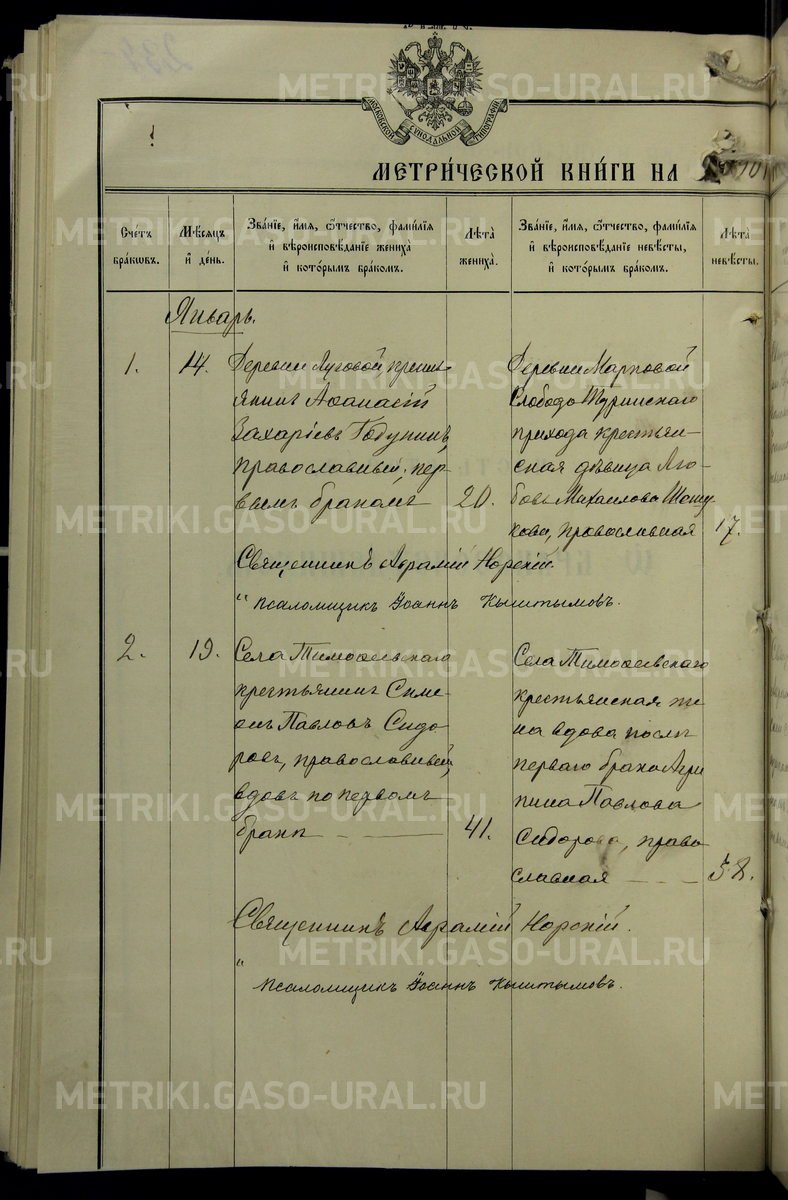 МОСКОВСКОЙ СѴНОДАЛЬНОЙ ТИПОГРАФІИ
МЕТРИ́ЧЕСКОЙ КНИ́ГИ НА
Сче́тъ бра́кѡвъ.
Мѣ́сяцъ и҆ де́нь.
Зва́нїе, и҆́мѧ, ѻ҆́тчество, фами́лїѧ
и҆ вѣроисповѣ́данїе жениха̀
и҆ кото́рымъ бра́комъ.
Лѣ́та̀ жениха̀.
Зва́нїе, и҆́мѧ, ѻ҆́тчество, фами́лїѧ
и҆ вѣроисповѣ́данїе невѣ́сты,
и҆ кото́рымъ бра́комъ.
Лѣ́та̀ невѣ́сты.
Январь.
1.
14.
Деревни Луговой, кресть
янинъ Аѳанасій
Захаріевъ Годунинъ,
православный, пер
вымъ бракомъ
20.
Деревни Марковой
Слободо Туринскаго
прихода крестьян-
ская дѣвица Лю-
бовь Михаилова Шашу
кова, православная
17.
Священникъ Авраамій Норскій.
" псаломщикъ Іоаннъ Кыштымовъ.
2.
19.
Села Тимоѳеевскаго
крестьянинъ Симе
онъ Павловъ Сидо
ровъ, православный,
вдовъ по первомъ
бракѣ
41.
Села Тимоѳеевскаго
крестьянская же
на вдова послѣ
перваго брака Агри
пина Павлова
Сидорова, право
славная
38.
Священникъ Авраамій Норскій.
" псаломщикъ Іоаннъ Кыштымовъ.
METRIKI.GASO-URAL.RU